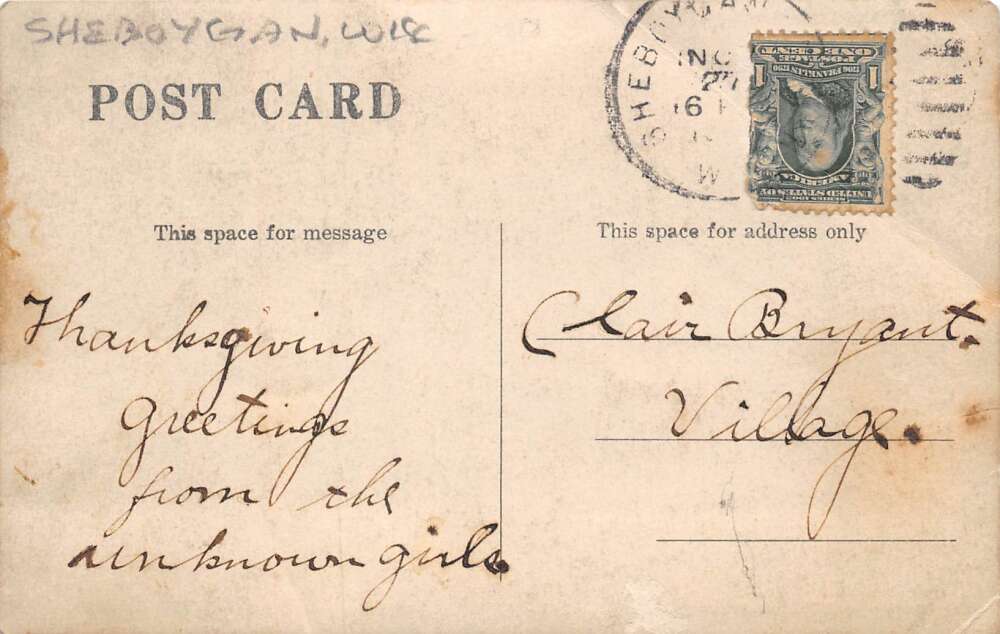 SHEBOYGAN, WIS
POST CARD
SHEBOYGAN
27
6
This space for message
This space for address only
Thanksgiving
Greetings
from the
unknown girls.
Clair Bryant.
Village.
SERIES 1902
UNITED STATES OF
AMERICA
1706 FRANKLIN 1790
POSTAGE
1 ONE CENT 1